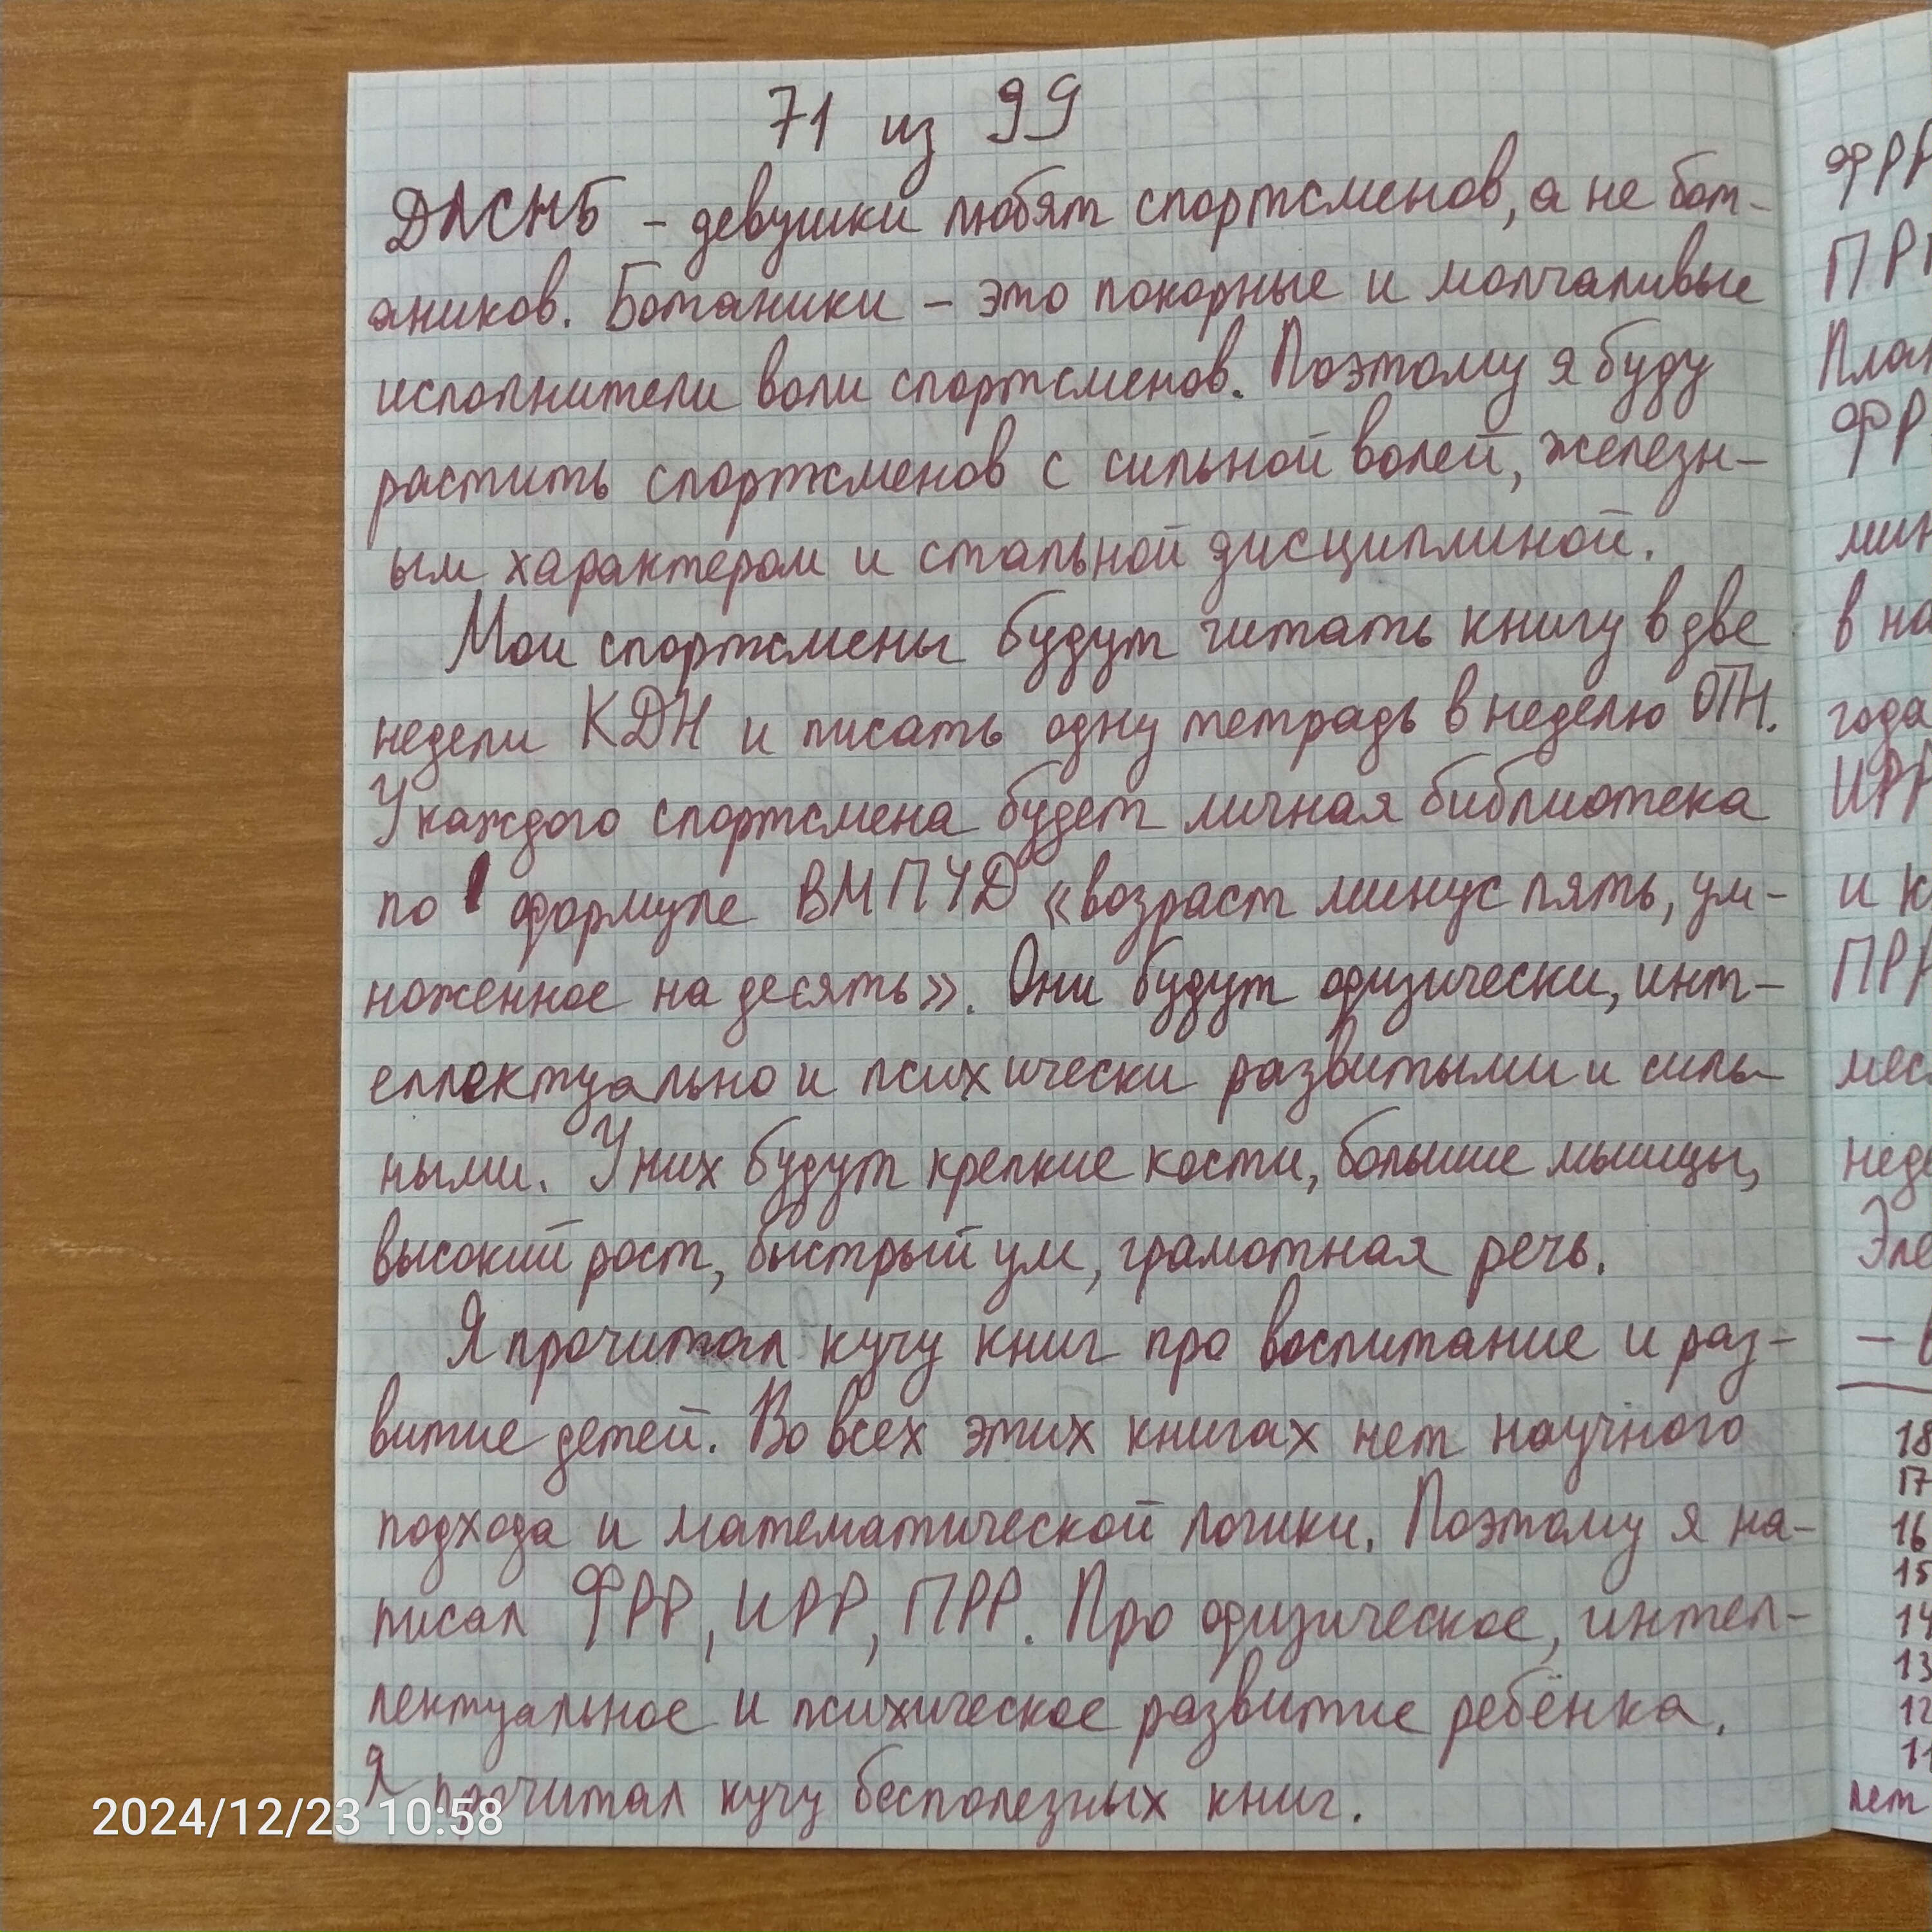 71 из 99
ДЛСНБ - девушки любят спортсменов, а не бот-
аников. Ботаники - это покорные и молчаливые
исполнители воли спортсменов. Поэтому я буду
растить спортсменов с сильной волей, железн-
ым характером и стальной дисциплиной.
Мои спортсмены будут читать книгу в две
недели КДН и писать одну тетрадь в неделю ОТН.
У каждого спортсмена будет личная библиотека
по формуле ВМПУД «возраст минус пять, ум-
ноженное на десять». Они будут физически, инт-
еллектуально и психически развитыми и силь-
ными. У них будут крепкие кости, большие мышцы,
высокий рост, быстрый ум, грамотная речь.
Я прочитал кучу книг про воспитание и раз-
витие детей. Во всех этих книгах нет научного
подхода и математической логики. Поэтому я на-
писал ФРР, ИРР, ПРР. Про физическое, интел-
лектуальное и психическое развитие ребёнка.
Я прочитал кучу бесполезных книг.
2024/12/23 10:58
ФРР
ПРР
ФР
в на
года
ИРР
и к
ПРР
- в
18
17
16
15
14
13
12
11
лет